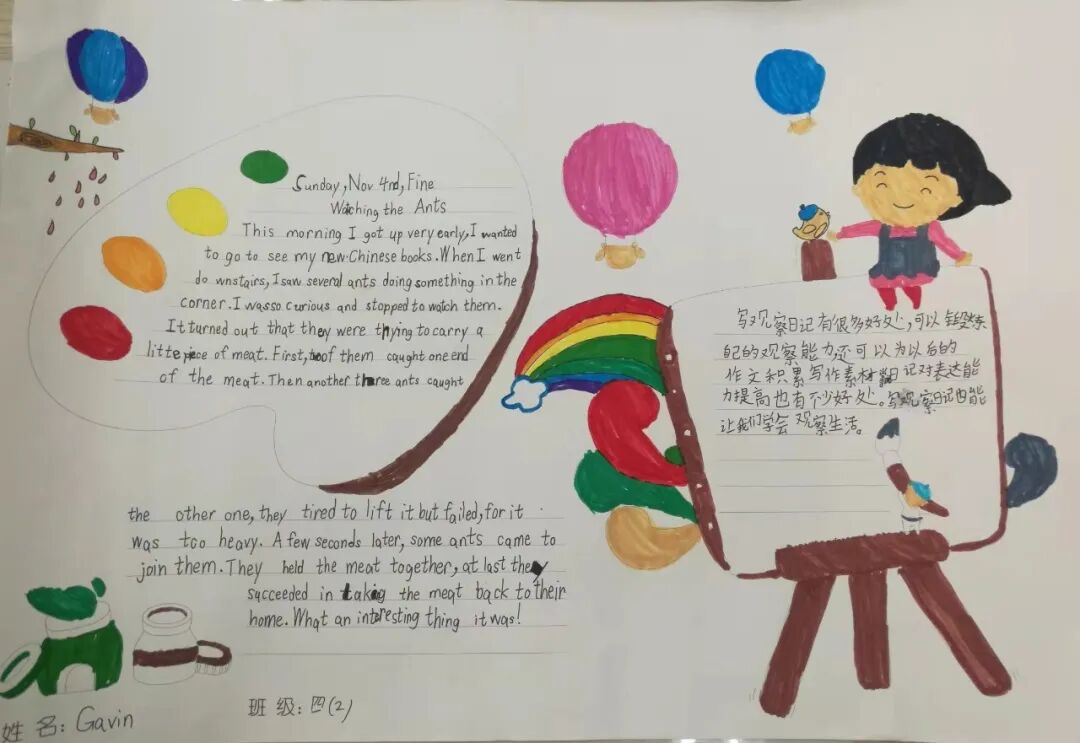 Sunday, Nov 4nd, Fine
Watching the Ants
This morning I got up very early, I wanted
to go to see my new Chinese books. When I went
downstairs, I saw several ants doing something in the
corner. I was so curious and stopped to watch them.
It turned out that they were thying to carry a
litte piece of meat. First, of them caught one end
of the meat. Then another three ants caught
the other one, they tired to lift it but failed, for it
was too heavy. A few seconds later, some ants came to
join them. They held the meat together, at last they
sacceeded in taking the meat back to their
home. What an interesting thing it was!
写观察日记有很多好处,可以锻炼
自己的观察能力还可以为以后的
作文积累写作素材 日记对表达能
力提高也有不少好处。写观察日记也能
让我们学会观察生活。
姓名: Gavin
班级: 四(2)